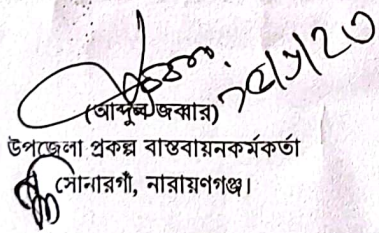 (আব্দুল জব্বার)
উপজেলা প্রকল্প বাস্তবায়নকর্মকর্তা
সোনারগাঁ, নারায়ণগঞ্জ।